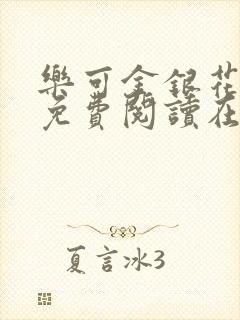 樂可金銀花
免費閱讀在
夏言冰3